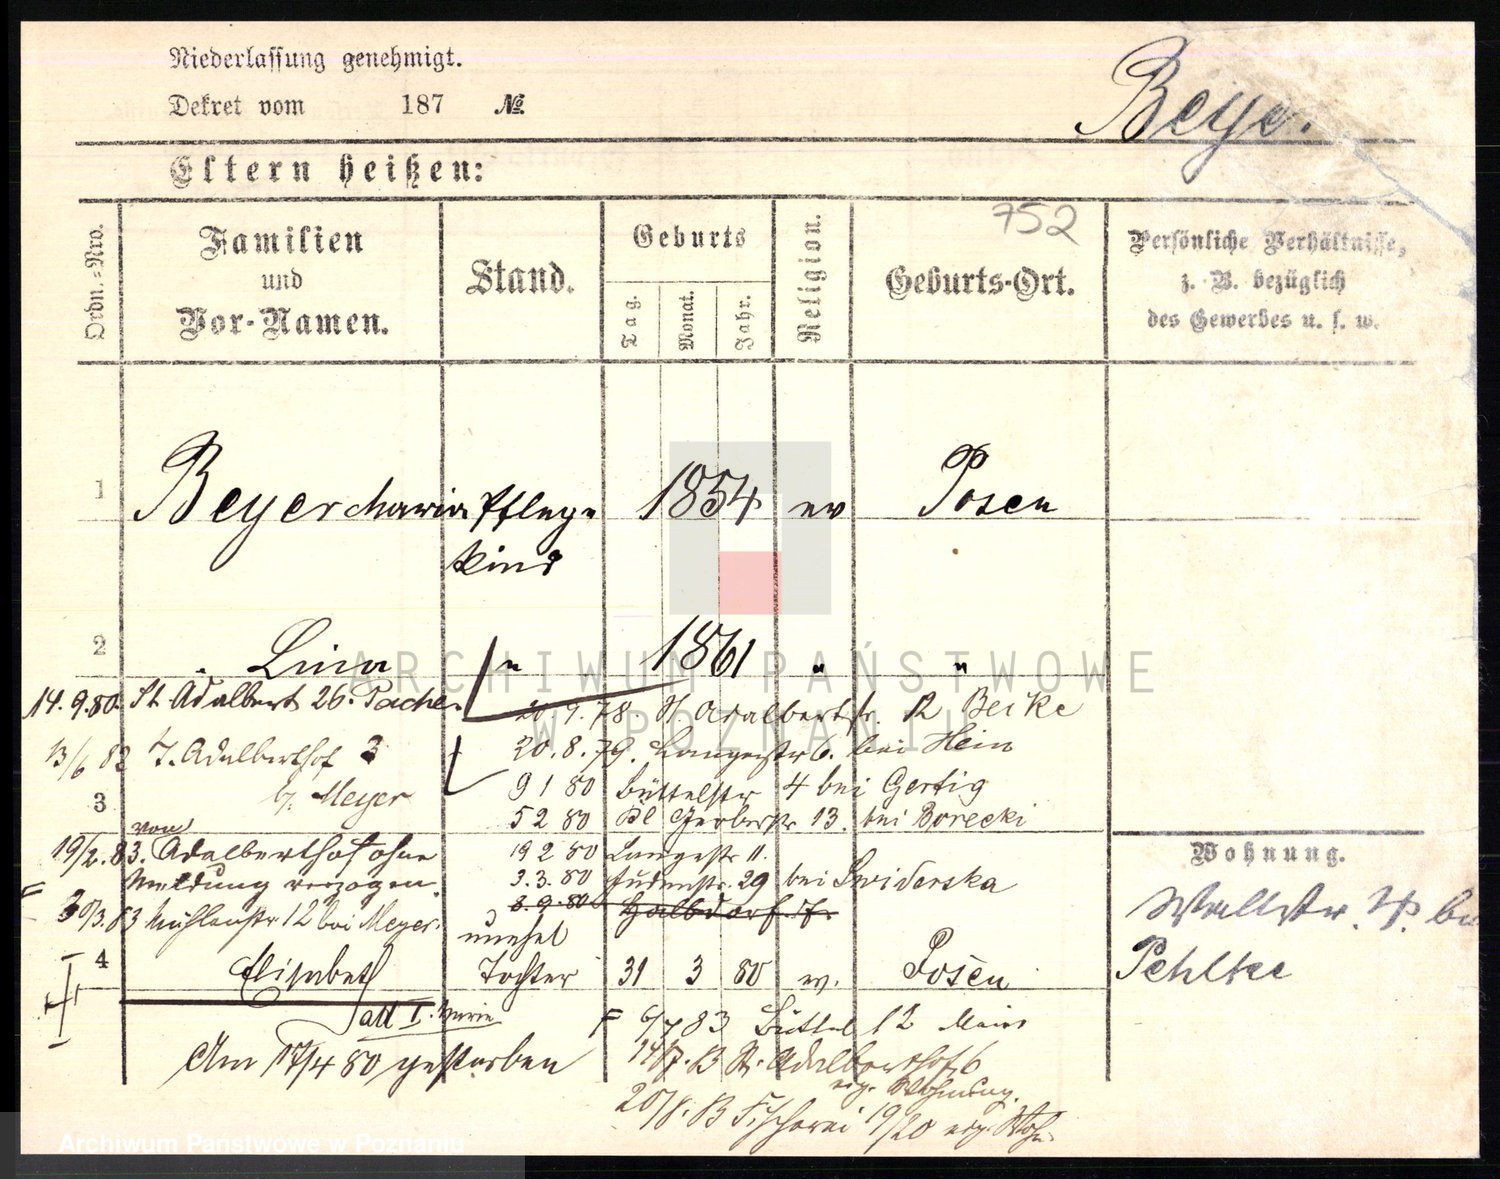 Niederlassung genehmigt.
Dekret vom 187 №
Beyer.
Eltern heißen:
752
Ordn.-Nro.
Familien
und
Vor-Namen.
Stand.
Geburts
Tag.
Monat.
Jahr.
Religion.
Geburts-Ort.
Persönliche Verhältnisse,
z. B. bezüglich
des Gewerbes u. s. w.
1 Beyer Maria Pflege 1854 ev Posen
kind
2 Lina " 1861 " "
ARCHIWUM PAŃSTWOWE
W POZNANIU
14.9.80. St. Adalbert 26. 20.9.78. St. Adalbertstr.
13/6 82 St. Adalberthof 3 20.8.79. Langestr 6. bei Hein
b/. Meyer 9 1 80 Büttelstr 4 bei Gertig
3 5 2 80 Kl Gerberstr. 13. bei Borecki
von
19/2.83. Adalberthof ohne 19 2 80 Langestr 11.
Meldung verzogen. 3.3.80 Judenstr. 29 bei Swiderska
8.9.80 Halbdorfstr.
30/3.83 Mühlenstr 12 bei Meyer.
Wohnung.
Wallstr. 4. bei
Pehlke
unehel
4 Elisabeth Tochter 31 3 80 w. Posen
ad 1. Maria
6/7 83 Büttel 12
Am 17/4 80 gestorben
14/7.83 St. Adalberthof 6
eig. Wohnung.
20/8.83 Fischerei 19/20 eig. Wohn.
Archiwum Państwowe w Poznaniu